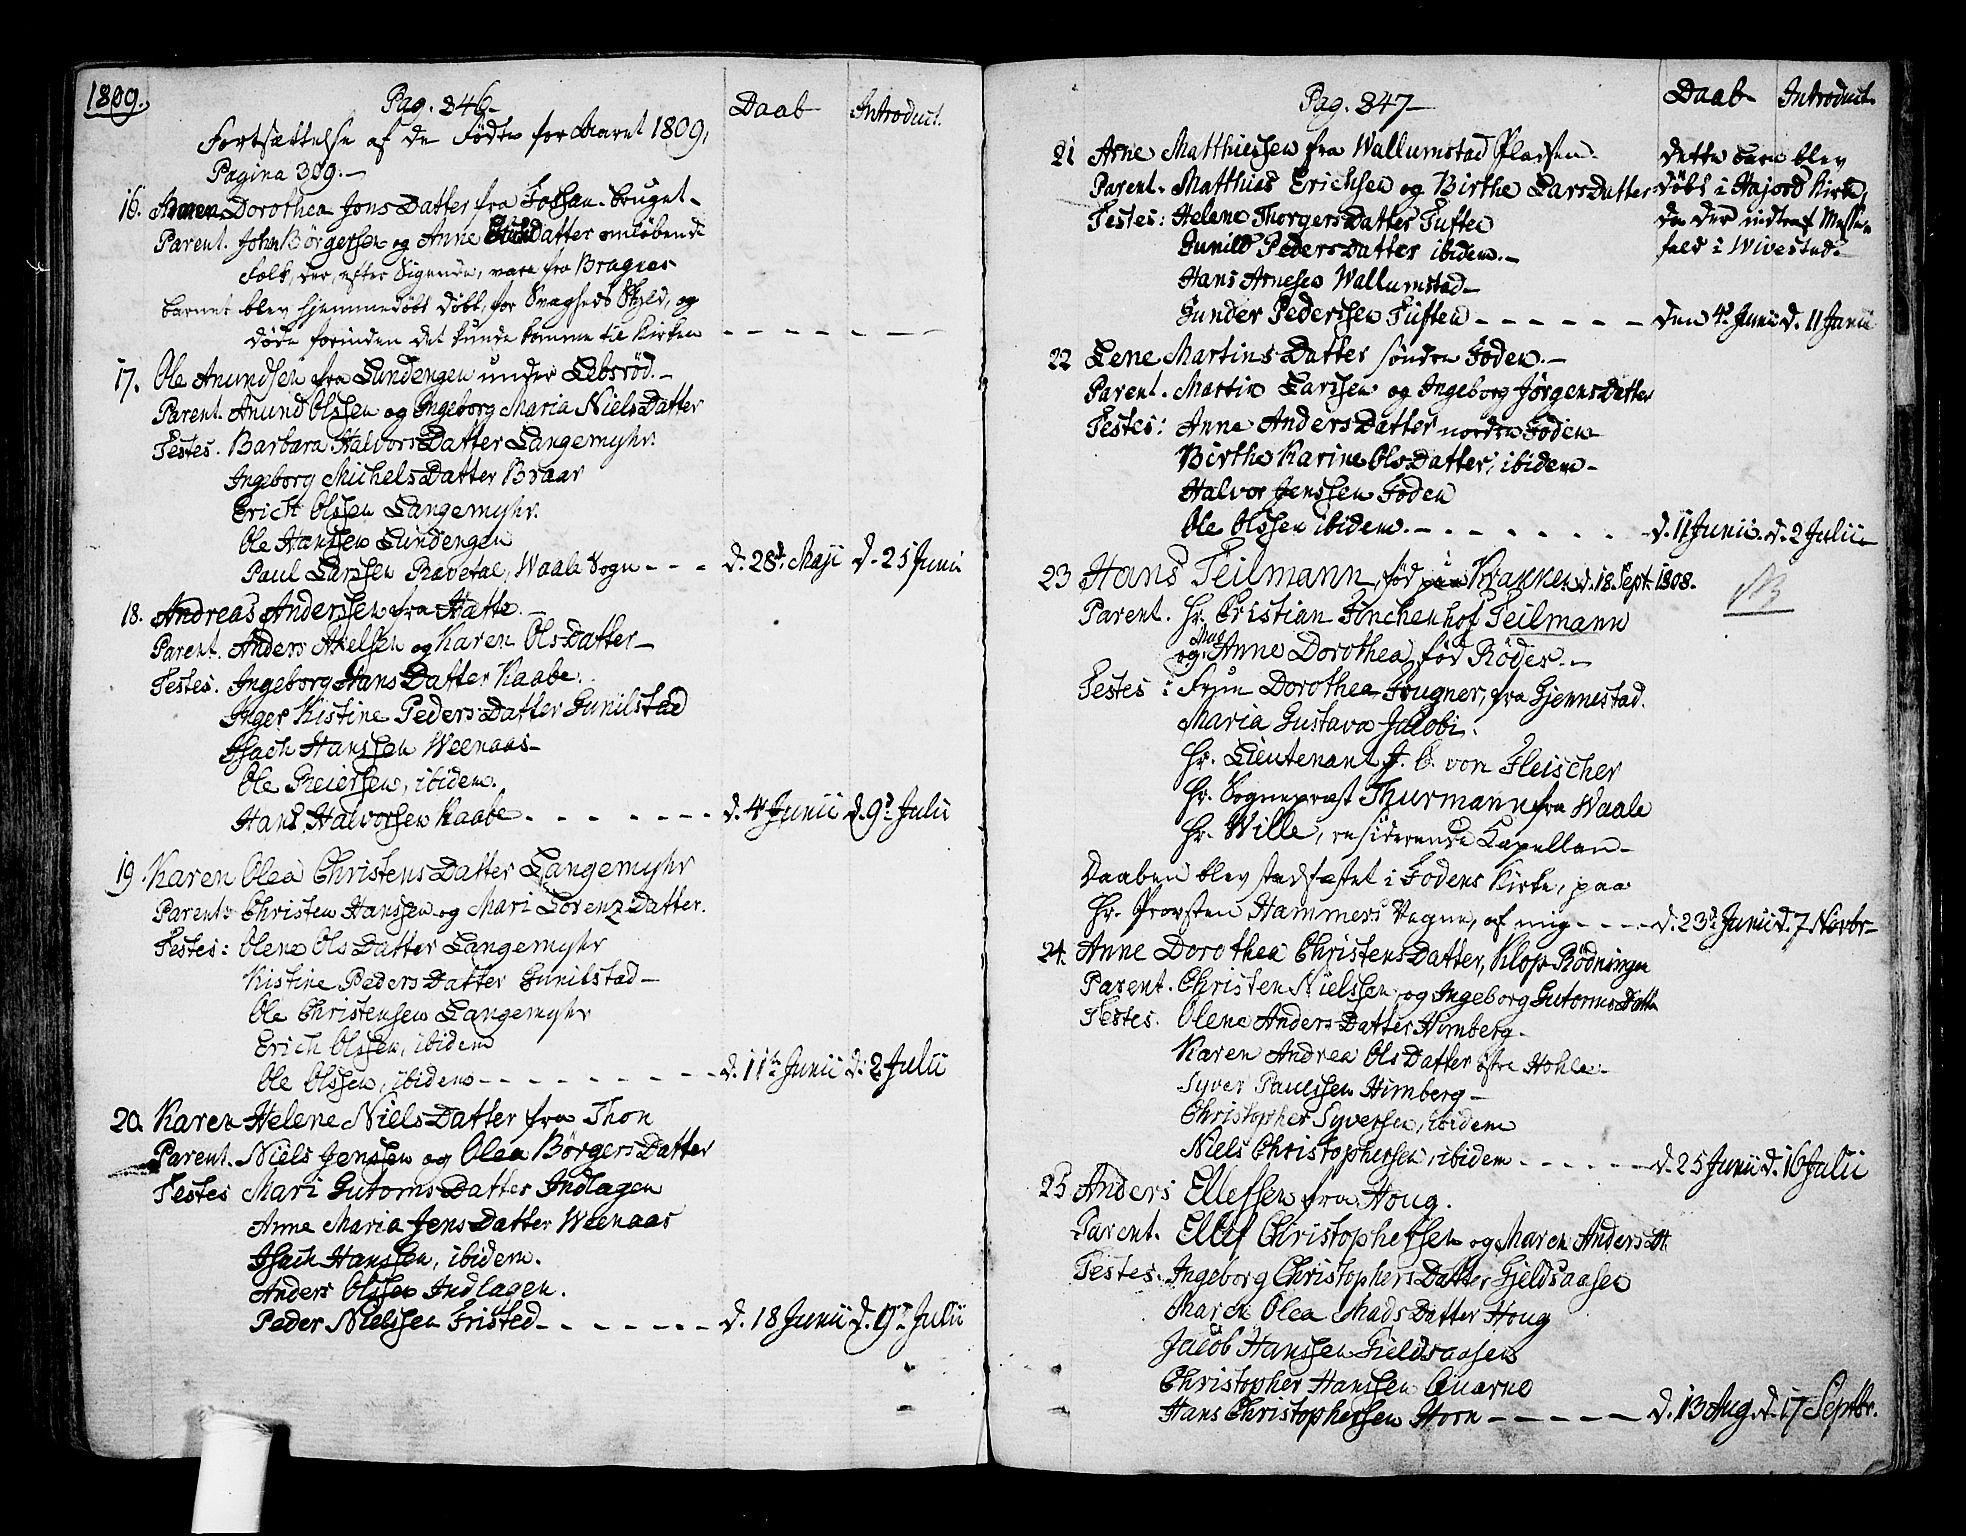 1809.
Pag. 346.
Daab
Introduct.
Fortsættelse af de Fødte for Aaret 1809,
Pagina 309.
16. Maren Dorothea Jons Datter fra Fossan-bruget
Parent. John Börgersen og Anne Datter omløbende
Folk, der, efter Sigende, vare fra Bragnes
barnet blev hjemmedøbt døbt, for Svagheds Skyld, og
døde forinden det kunde komme til Kirken
17. Ole Anundsen fra Lundengen under Lebsröd.
Parent. Anund Olssen og Ingeborg Maria Niels Datter
Testes. Barbara Halvors Datter Langemyhr.
Ingeborg Michels Datter Braar
Erich Olssen Langemyhr.
Ole Hanssen Lundengen
Paul Larssen Rævetal, Waale Sogn - - - d. 28d Maji d. 25 Junii
18. Andreas Anderssen fra Hatte.
Parent. Anders Axelsen og Karen Ols Datter
Testes. Ingeborg Hans Datter Kaabe.
Inger Kistine Peders Datter Gunilstad
Isach Hanssen Weenaas
Ole Reierssen, ibidem.
Hans Halvorsen Kaabe - - - - - d. 4d Junii d. 9d Julii
19. Karen Olea Christens Datter Langemyhr
Parent. Christen Hanssen og Mari Lorenz Datter.
Testes: Olene Ols Datter Langemyhr
Kistine Peders Datter Gunilstad
Ole Christensen Langemyhr
Erich Olssen, ibidem
Ole Olssen, ibidem - - - - - d. 11te Junii d. 2 Julii
20. Karen Helene Niels Datter fra Thon
Parent. Niels Jenssen og Olea Börgers Datter
Testes Mari Gutorms Datter Indlagen
Anne Maria Jens Datter Weenaas
Isach Hanssen, ibidem.
Anders Olssen Indlagen.
Peder Nielssen Fristed - - - - - d. 18 Junii d. Julii
Pag. 347
Daab
Introduct.
21 Arne Matthiessen fra Wallumstad Pladsen.
Parent. Matthias Erichsen og Birthe Lars Datter
Testes: Helene Thorgers Datter Tuften
Gunild Peders Datter ibidem.
Hans Arnesen Wallumstad
Gunder Pederssen Tuften - - - - -
dette barn blev
døbt i Kirke,
da der indtraf Messe-
fald i Wivestad.
den 4d Junii d. 11 Junii
22 Lene Martins Datter søndre Foden.
Parent. Martin Larssen og Ingeborg Jørgens Datter
Testes: Anne Anders Datter nordre Foden
Birthe Karine Ols Datter, ibidem
Halvor Jenssen Foden
Ole Olssen ibidem. - - - - - d. 11 Junii. d. 2 Julii
23 Hans Teilmann, fød paa Krakken d. 18. Sept. 1808.
NB
Parent. Hr. Cristian Finchenhof Teilmann
og Mad Anne Dorothea, fød Röder.
Testes: Frue Dorothea Frugner, fra Gjennestad.
Maria Gustava Jakobi.
Hr. Lieutenant J. C. von Fleischer
Hr. Sognepræst Thurmann fra Waale
Hr. Wille, residerende Capellan
Daaben blev stadfæstet i Fodens Kirke, paa
Hr. Provsten Hammers Vegne, af mig - - - d. 23d Junii d. 7 Novbr
24. Anne Dorothea Christens Datter, Klop-Rödningen
Parent. Christen Nielssen og Ingeborg Gutorms Datt
Testes. Olene Anders Datter Himberg.
Karen Andrea Ols Datter østre Hohle.
Syver Paulssen Himberg
Christopher Syversen, ibidem
Niels Christophersen, ibidem - - - - - d. 25 Junii d. 16 Julii
25 Anders Ellefsen fra Houg.
Parent. Ellef Christophersen og Maren Anders Dt.
Testes. Ingeborg Christophers Datter Fjeldsaasen
Maren Olea Mads Datter Houg
Jacob Hanssen Fieldsaasen
Christopher Hanssen Quarne
Hans Christophersen Horn - - - - - d. 13 Aug. d. 17 Septbr.